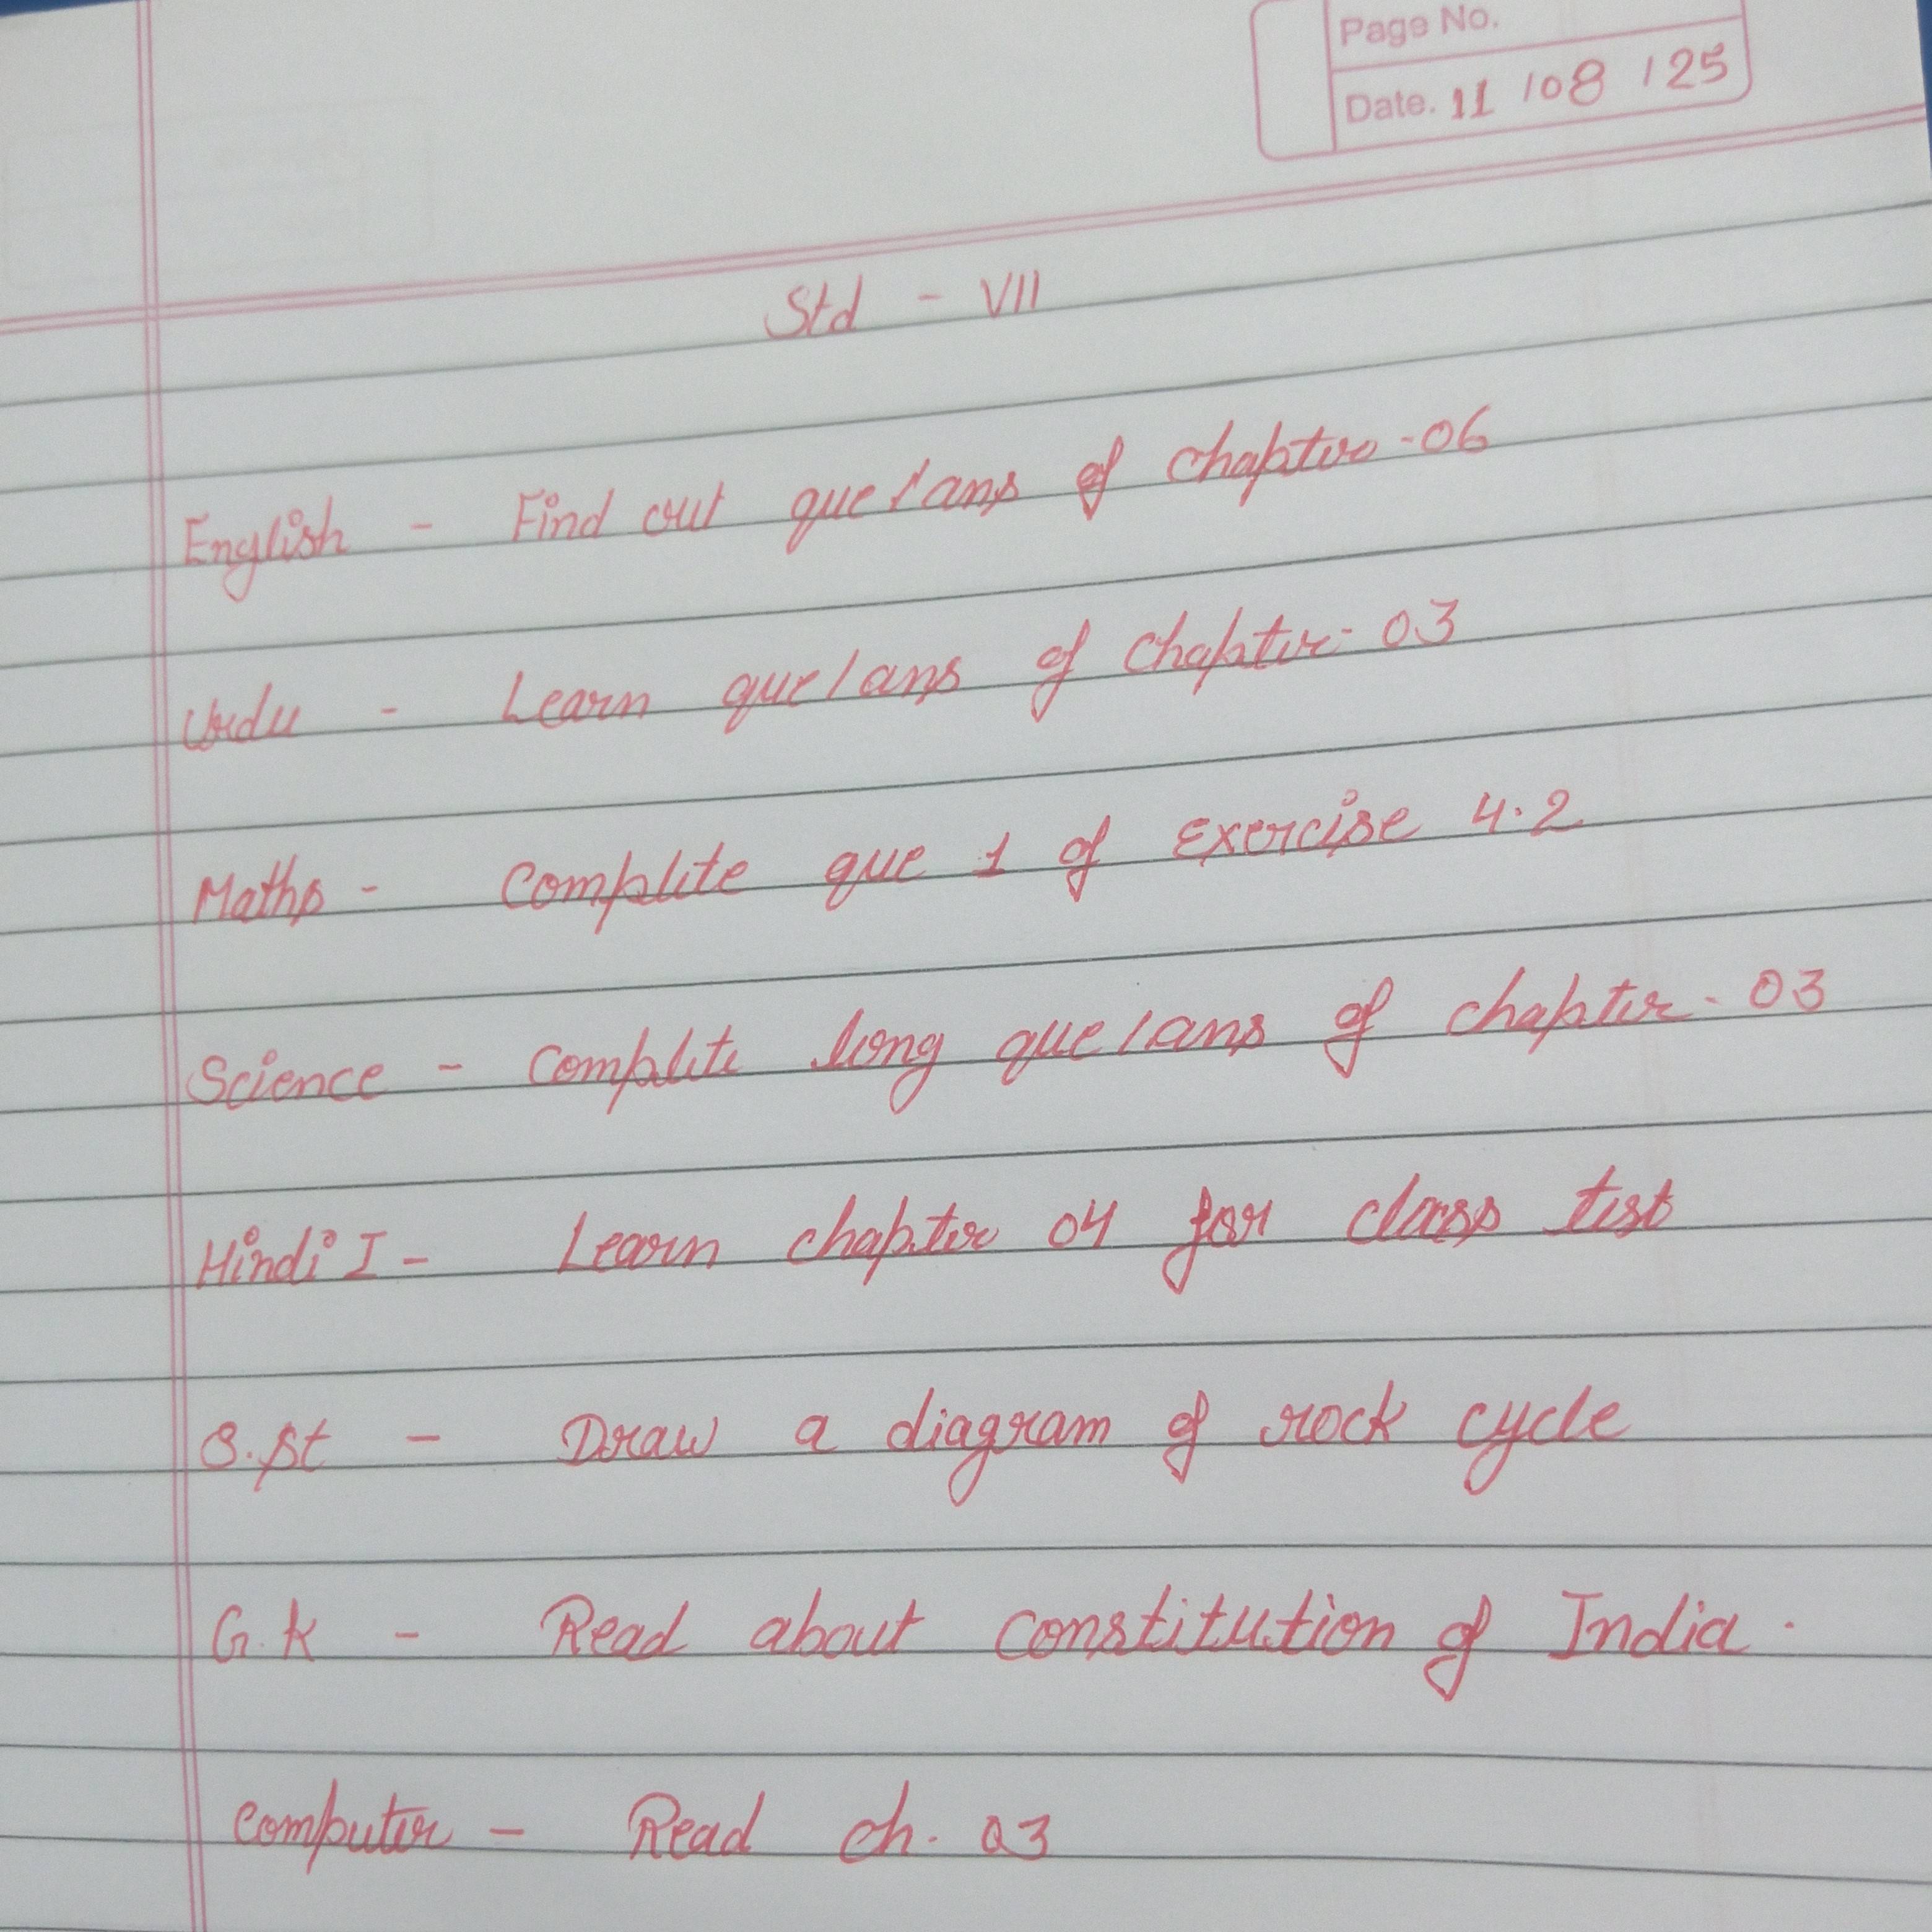 Page No.
Date. 11 / 08 / 25
Std - VII
English - Find out que/ans of chapter - 06
Urdu - Learn que/ans of chapter - 03
Maths - Complete que 1 of exercise 4.2
Science - Complete long que/ans of chapter - 03
Hindi I - Learn chapter 04 for class test
S.st - Draw a diagram of rock cycle
G.K - Read about constitution of India.
Computer - Read ch. 03